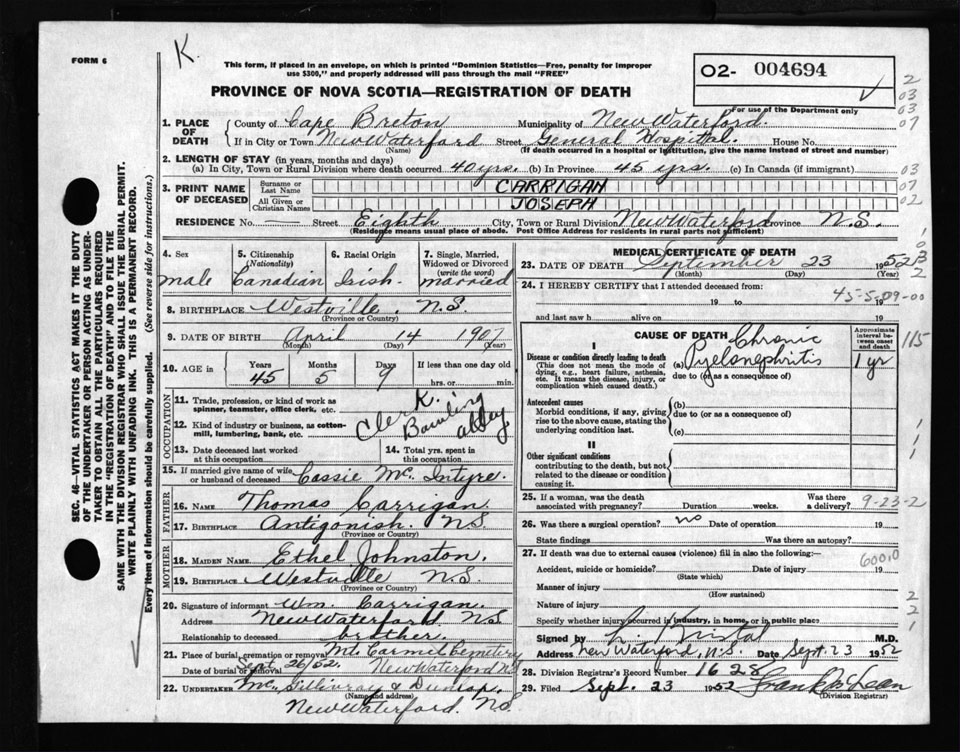 FORM 6
K.
This form, if placed in an envelope, on which is printed "Dominion Statistics—Free, penalty for improper
use $300," and properly addressed will pass through the mail "FREE"
02- 004694
PROVINCE OF NOVA SCOTIA—REGISTRATION OF DEATH
For use of the Department only
2
03
03
07
1. PLACE OF DEATH County of Cape Breton Municipality of New Waterford
If in City or Town New Waterford Street General Hospital. House No.
(Name) (If death occurred in a hospital or institution, give the name instead of street and number)
2. LENGTH OF STAY (in years, months and days)
(a) In City, Town or Rural Division where death occurred 40 yrs. (b) In Province 45 yrs. (c) In Canada (if immigrant)
03
07
02
3. PRINT NAME OF DECEASED Surname or Last Name CARRIGAN
All Given or Christian Names JOSEPH
RESIDENCE No. Street Eighth City, Town or Rural Division New Waterford Province N.S.
(Residence means usual place of abode. Post Office Address for residents in rural parts not sufficient)
4. Sex 5. Citizenship (Nationality) 6. Racial Origin 7. Single, Married, Widowed or Divorced (write the word)
male Canadian Irish. married
8. BIRTHPLACE Westville, N.S.
(Province or Country)
9. DATE OF BIRTH April 14 1907
(Month) (Day) (Year)
10. AGE in Years Months Days If less than one day
45 5 9 hrs. or min.
OCCUPATION
11. Trade, profession, or kind of work as
spinner, teamster, office clerk, etc.
12. Kind of industry or business, as cotton-
mill, lumbering, bank, etc.
Clerk.
Bowling
alley
13. Date deceased last worked
at this occupation
14. Total yrs. spent in
this occupation
15. If married give name of wife
or husband of deceased Cassie Mc. Intyre.
FATHER
16. NAME Thomas Carrigan.
17. BIRTHPLACE Antigonish. N.S.
(Province or Country)
MOTHER
18. MAIDEN NAME Ethel Johnston.
19. BIRTHPLACE Westville N.S.
(Province or Country)
20. Signature of informant Wm. Carrigan.
Address New Waterford N.S.
Relationship to deceased brother.
21. Place of burial, cremation or removal Mt. Carmel Cemetery
Date of burial or removal Sept 26/52. New Waterford N.S.
22. UNDERTAKER Mc. Gillivray & Dunlop.
(Name and address)
New Waterford. N.S.
MEDICAL CERTIFICATE OF DEATH
23. DATE OF DEATH September 23 1952
(Month) (Day) (Year)
24. I HEREBY CERTIFY that I attended deceased from:
19 to 19
45-5-09-00
and last saw h alive on 19
CAUSE OF DEATH
Approximate interval between onset and death
I
Disease or condition directly leading to death
(This does not mean the mode of
dying, e.g., heart failure, asthenia,
etc. It means the disease, injury, or
complication which caused death.)
(a) Chronic
Pyelonephritis
1 yr
115
due to (or as a consequence of)
Antecedent causes
Morbid conditions, if any, giving
rise to the above cause, stating the
underlying condition last.
(b)
due to (or as a consequence of)
(c)
II
Other significant conditions
contributing to the death, but not
related to the disease or condition
causing it.
25. If a woman, was the death
associated with pregnancy? Duration weeks. Was there
a delivery?
9-23-2
26. Was there a surgical operation? no Date of operation 19
State findings Was there an autopsy?
27. If death was due to external causes (violence) fill in also the following:—
600.0
Accident, suicide or homicide? Date of injury 19
(State which)
Manner of injury
(How sustained)
Nature of injury
Specify whether injury occurred in industry, in home, or in public place
Signed by Kristal M.D.
Address New Waterford, N.S. Date Sept. 23 1952
28. Division Registrar's Record Number 1628
29. Filed Sept. 23 1952 Frank McLean
(Division Registrar)
SEC. 46—VITAL STATISTICS ACT MAKES IT THE DUTY
OF THE UNDERTAKER OR PERSON ACTING AS UNDER-
TAKER TO OBTAIN ALL THE PARTICULARS REQUIRED
IN THE "REGISTRATION OF DEATH" AND TO FILE THE
SAME WITH THE DIVISION REGISTRAR WHO SHALL ISSUE THE BURIAL PERMIT.
WRITE PLAINLY WITH UNFADING INK. THIS IS A PERMANENT RECORD.
Every item of information should be carefully supplied. (See reverse side for instructions.)